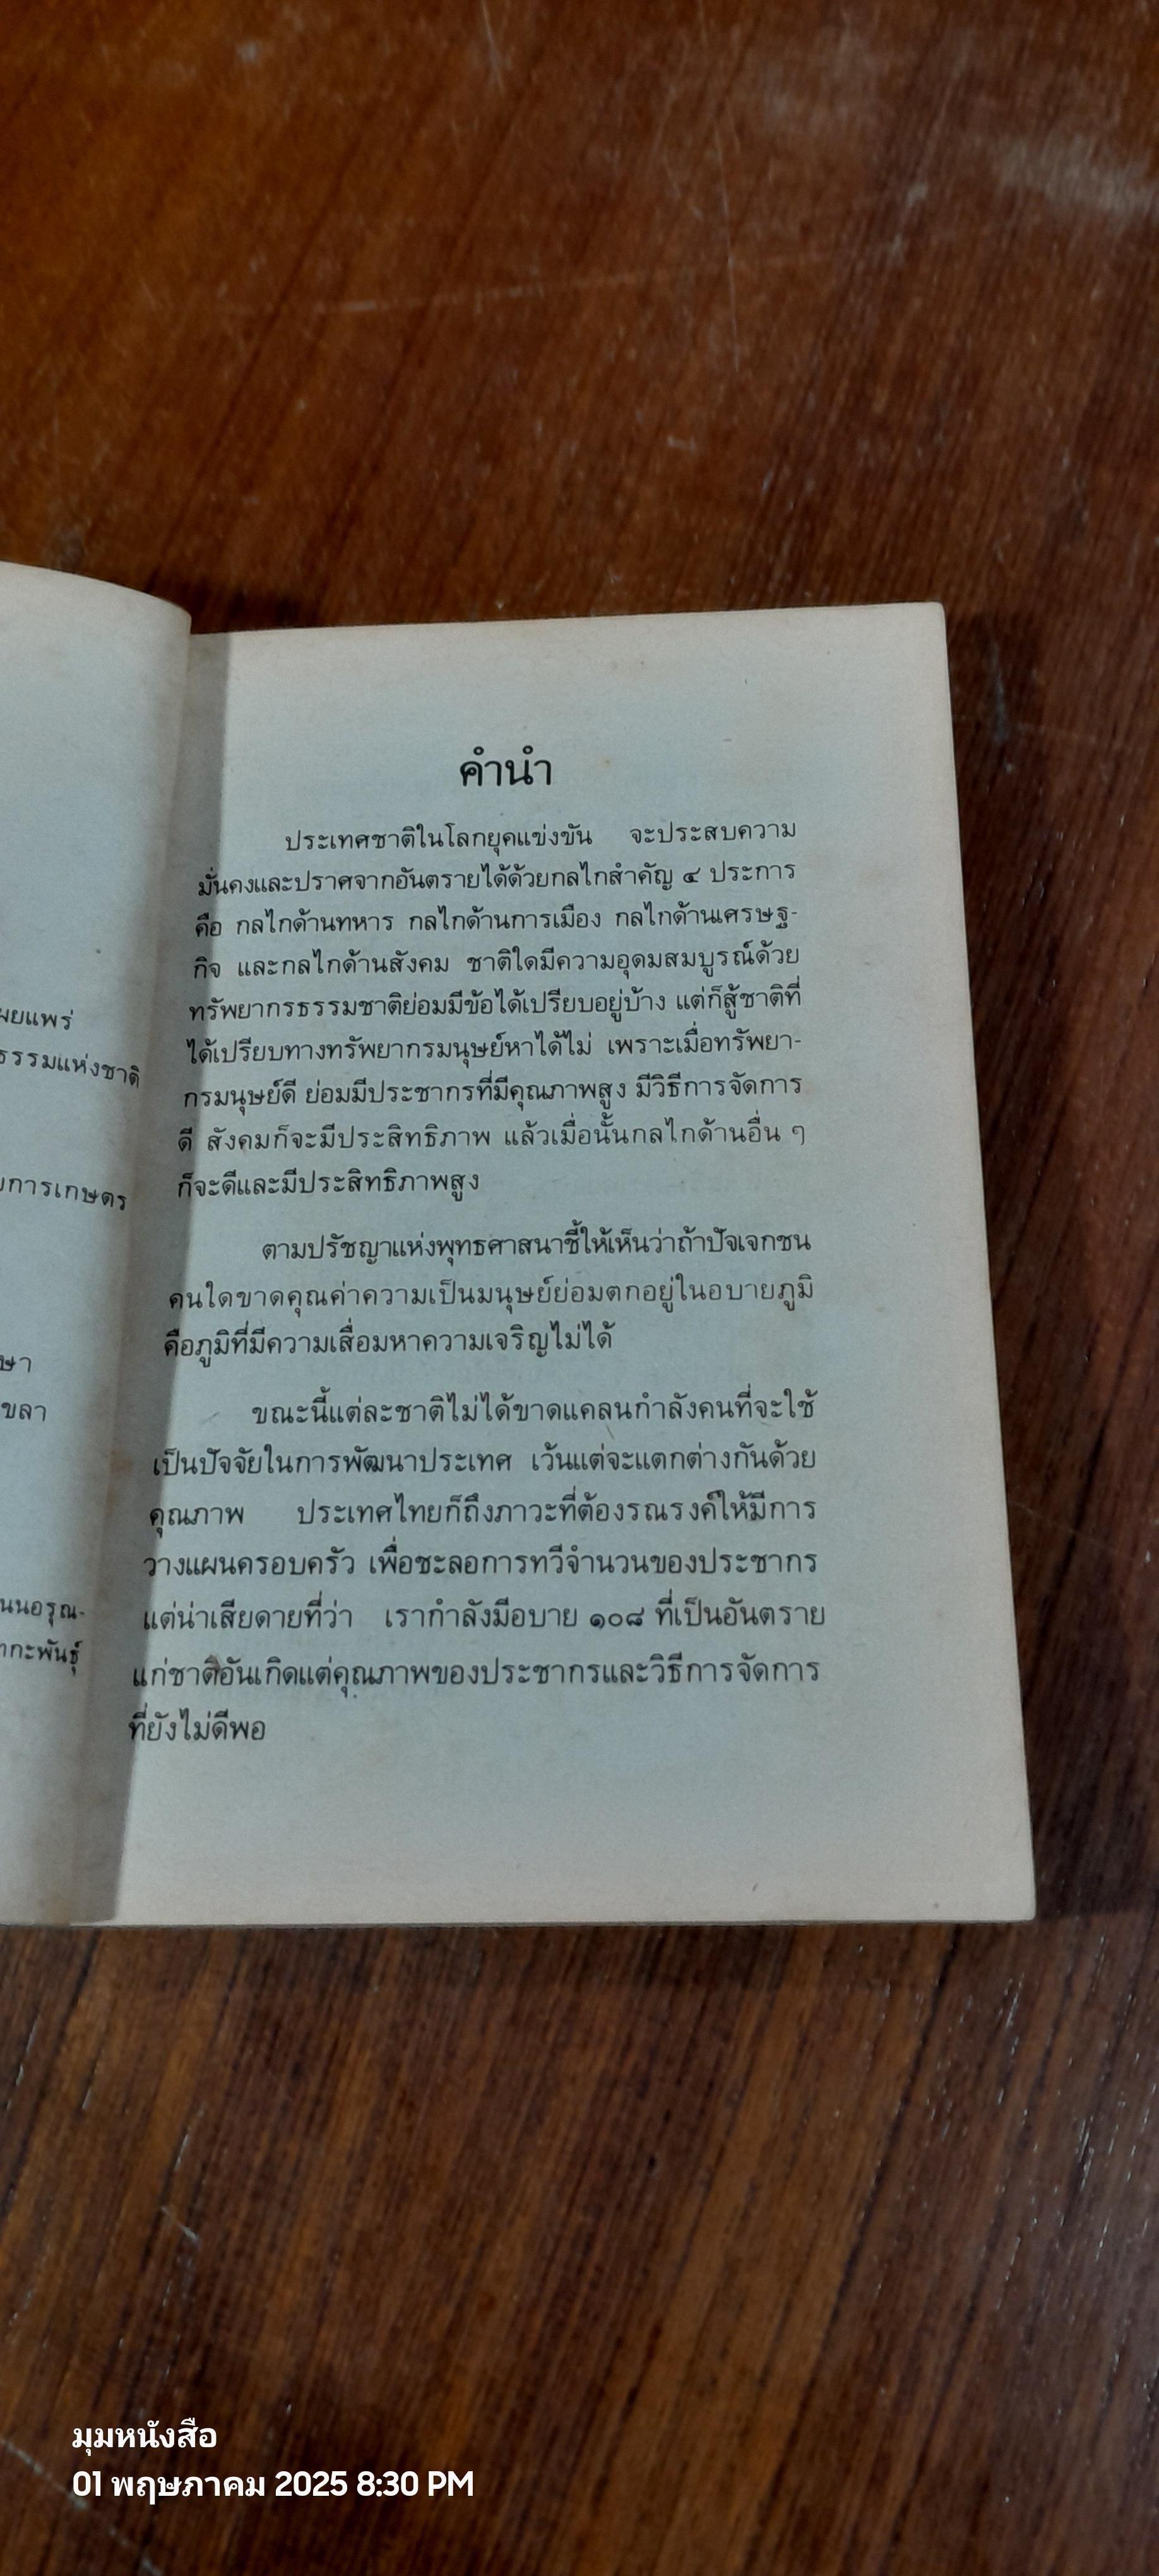 ผยแพร่
ธรรมแห่งชาติ
การเกษตร
ษา
ขลา
นนอรุณ-
กะพันธุ์
คำนำ
ประเทศชาติในโลกยุคแข่งขัน จะประสบความ
มั่นคงและปราศจากอันตรายได้ด้วยกลไกสำคัญ ๔ ประการ
คือ กลไกด้านทหาร กลไกด้านการเมือง กลไกด้านเศรษฐ-
กิจ และกลไกด้านสังคม ชาติใดมีความอุดมสมบูรณ์ด้วย
ทรัพยากรธรรมชาติย่อมมีข้อได้เปรียบอยู่บ้าง แต่ก็สู้ชาติที่
ได้เปรียบทางทรัพยากรมนุษย์หาได้ไม่ เพราะเมื่อทรัพยา-
กรมนุษย์ดี ย่อมมีประชากรที่มีคุณภาพสูง มีวิธีการจัดการ
ดี สังคมก็จะมีประสิทธิภาพ แล้วเมื่อนั้นกลไกด้านอื่น ๆ
ก็จะดีและมีประสิทธิภาพสูง
ตามปรัชญาแห่งพุทธศาสนาชี้ให้เห็นว่าถ้าปัจเจกชน
คนใดขาดคุณค่าความเป็นมนุษย์ย่อมตกอยู่ในอบายภูมิ
คือภูมิที่มีความเสื่อมหาความเจริญไม่ได้
ขณะนี้แต่ละชาติไม่ได้ขาดแคลนกำลังคนที่จะใช้
เป็นปัจจัยในการพัฒนาประเทศ เว้นแต่จะแตกต่างกันด้วย
คุณภาพ ประเทศไทยก็ถึงภาวะที่ต้องรณรงค์ให้มีการ
วางแผนครอบครัว เพื่อชะลอการทวีจำนวนของประชากร
แต่น่าเสียดายที่ว่า เรากำลังมีอบาย ๑๐๘ ที่เป็นอันตราย
แก่ชาติอันเกิดแต่คุณภาพของประชากรและวิธีการจัดการ
ที่ยังไม่ดีพอ
มุมหนังสือ
01 พฤษภาคม 2025 8:30 PM